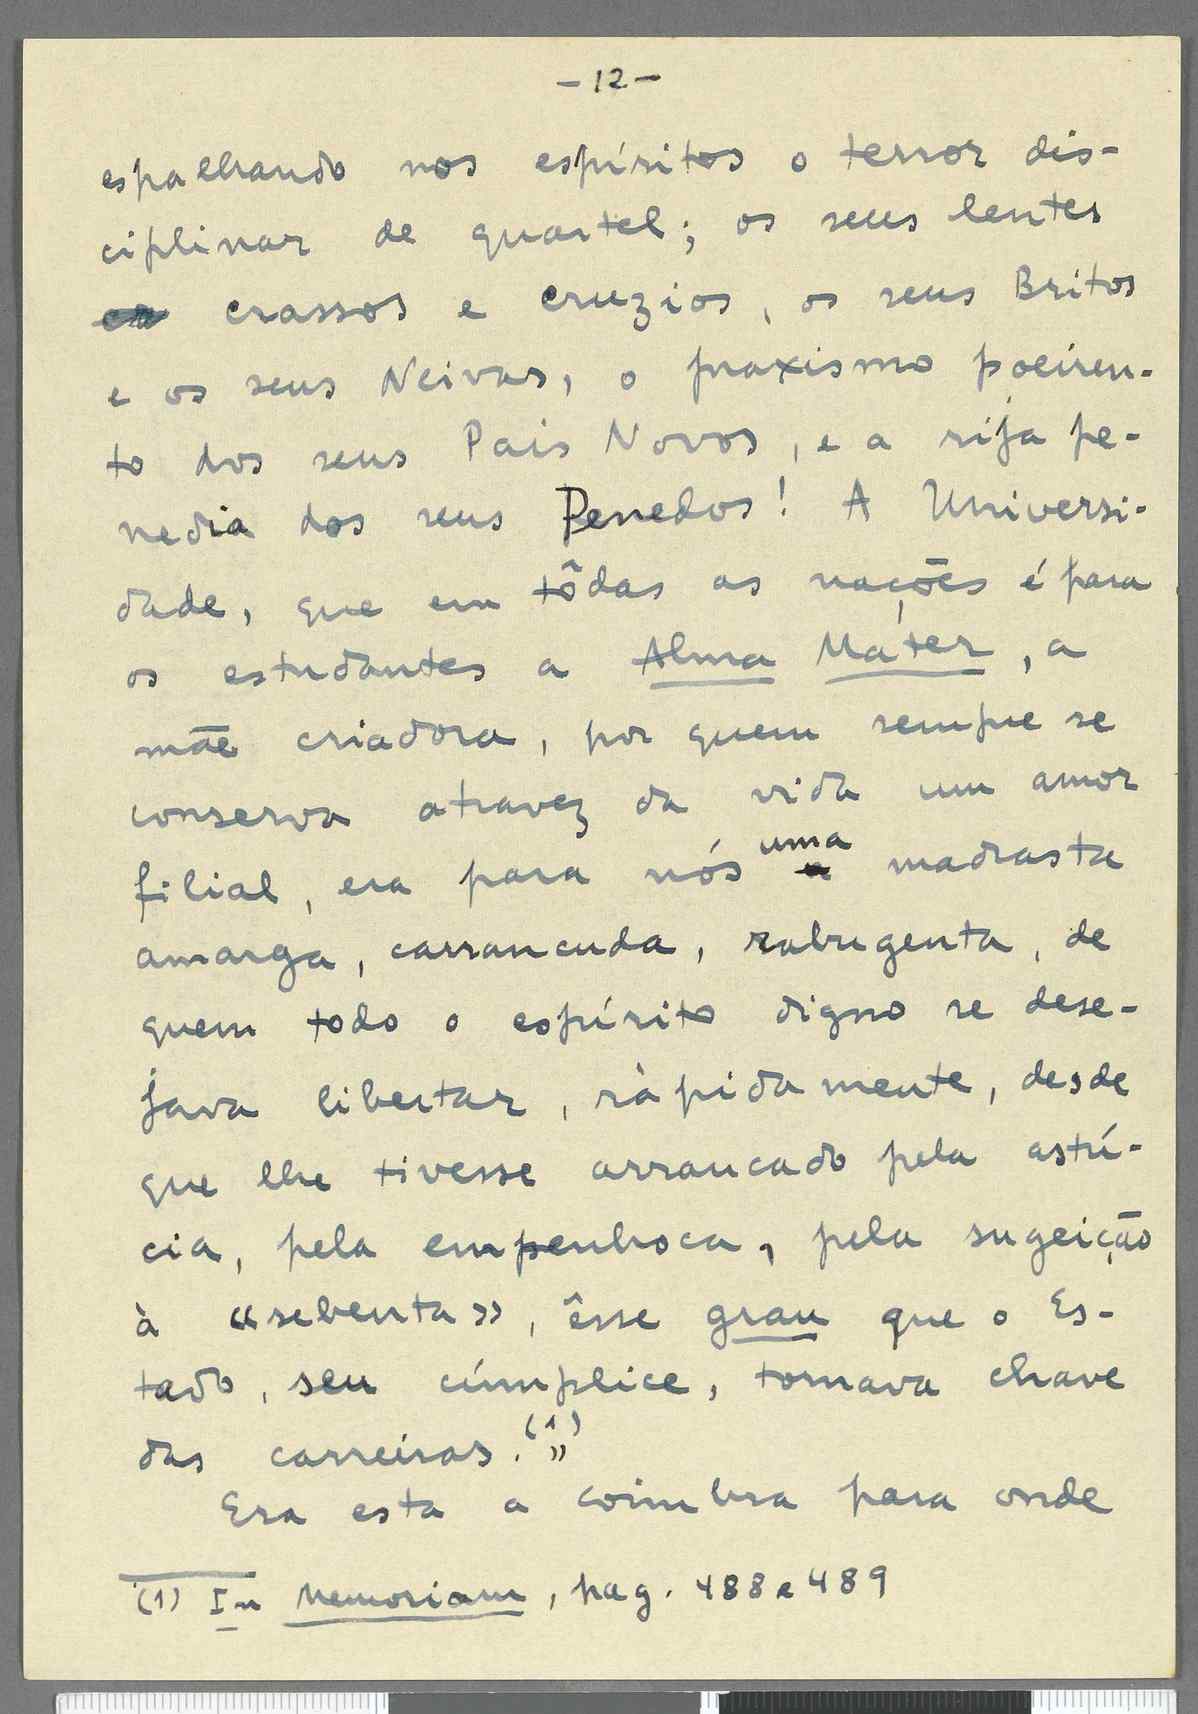 - 12 -
espalhando nos espíritos o terror dis-
ciplinar de quartel; os seus lentes
crassos e cruzios, os seus Britos
e os seus Neivas, o praxismo poeiren-
to dos seus Pais Novos, e a rija pe-
nedia dos seus Penedos! A Universi-
dade, que em tôdas as nações é para
os estudantes a Alma Máter, a
mãe criadora, por quem sempre se
conserva atravez da vida um amor
filial, era para nós uma madrasta
amarga, carrancuda, rabugenta, de
quem todo o espírito digno se dese-
java libertar, ràpidamente, desde
que lhe tivesse arrancado pela astú-
cia, pela empenhoca, pela sugeição
à «sebenta», êsse grau que o Es-
tado, seu cúmplice, tornava chave
das carreiras.(1)»
Era esta a Coimbra para onde
(1) In Memoriam, pag. 488 e 489